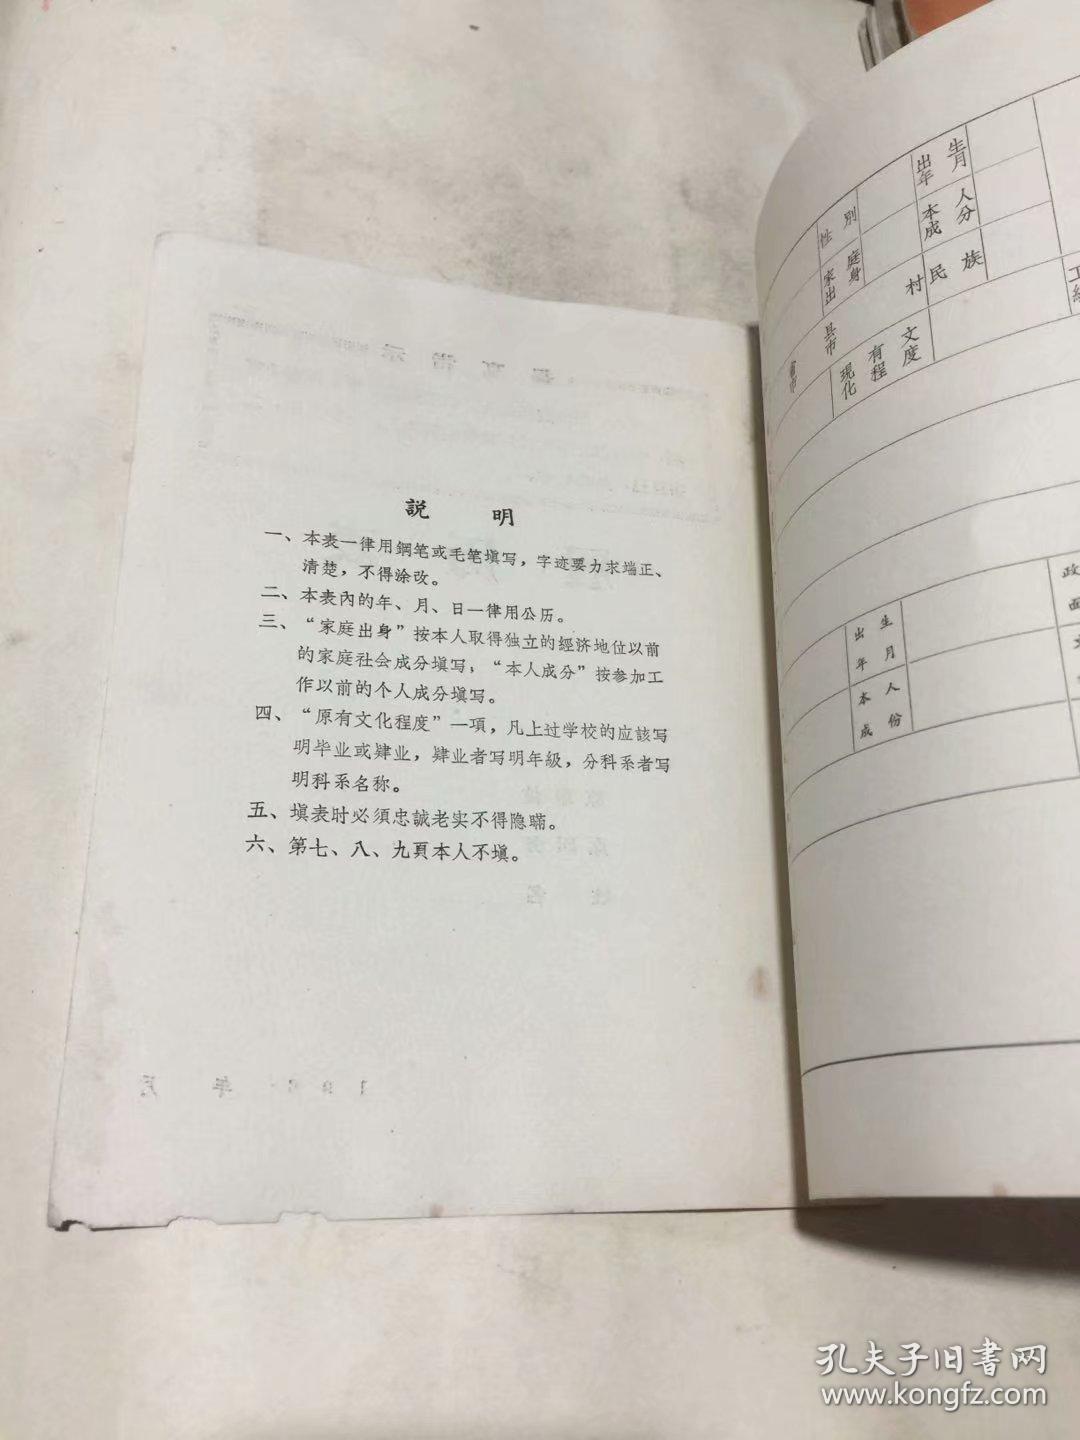 説 明
一、本表一律用鋼笔或毛笔塡写，字迹要力求端正、
清楚，不得涂改。
二、本表內的年、月、日一律用公历。
三、“家庭出身”按本人取得独立的經济地位以前
的家庭社会成分塡写，“本人成分”按参加工
作以前的个人成分塡写。
四、“原有文化程度”一項，凡上过学校的应該写
明毕业或肄业，肄业者写明年級，分科系者写
明科系名称。
五、塡表时必須忠誠老实不得隐瞞。
六、第七、八、九頁本人不塡。
性別
出生年月
家庭出身
本人成分
省市
县市
村
民族
現有文化程度
工
出生年月
政
面
本人成份
孔夫子旧書网
www.kongfz.com